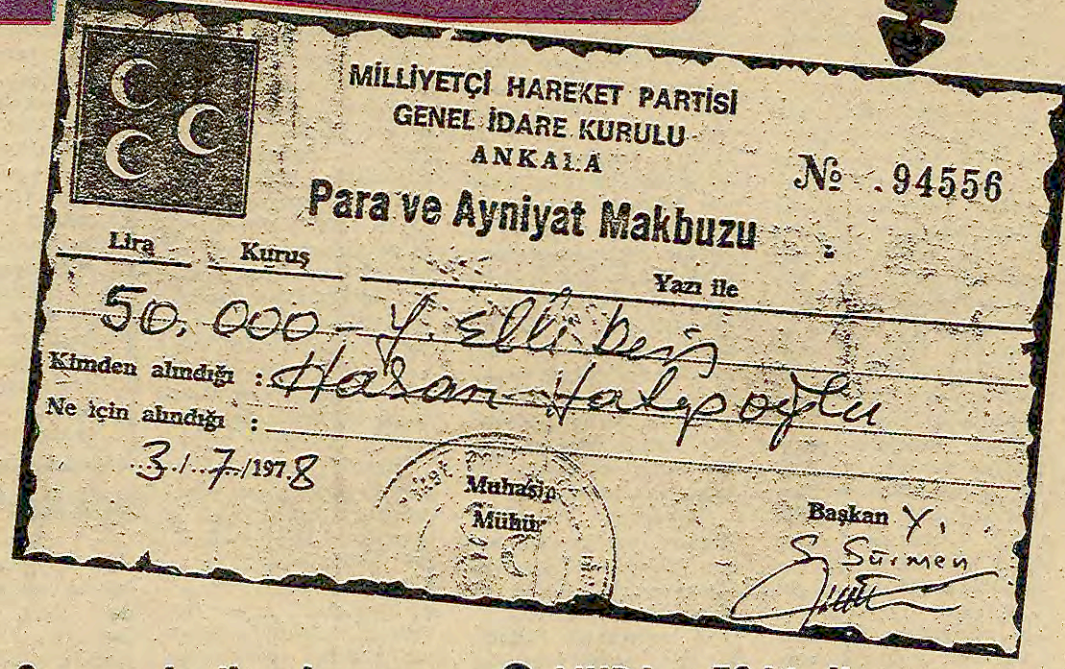 MİLLİYETÇİ HAREKET PARTİSİ
GENEL İDARE KURULU
ANKARA
№ 94556
Para ve Ayniyat Makbuzu
Lira Kuruş Yazı ile
50.000 - Y. elli bin
Kimden alındığı : Hasan Hatipoğlu
Ne için alındığı :
3./..7./1978
Muhasip
Mühür
Başkan Y.
S. Sürmen